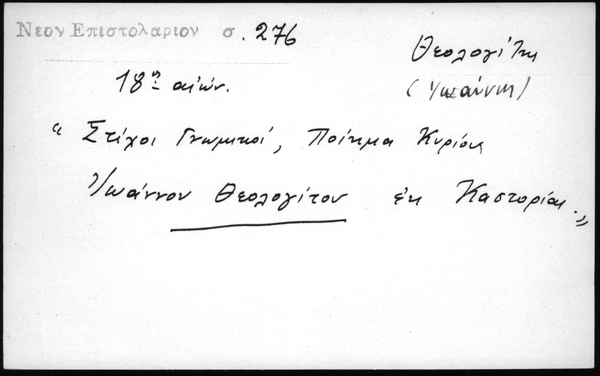 Νεον Επιστολαριον σ. 276
Θεολογίτης
18ος αιών.
(Ιωάννης)
"Στίχοι Γνωμικοί, Ποίημα Κυρίου
Ιωάννου Θεολογίτου ἐκ Καστορίας."